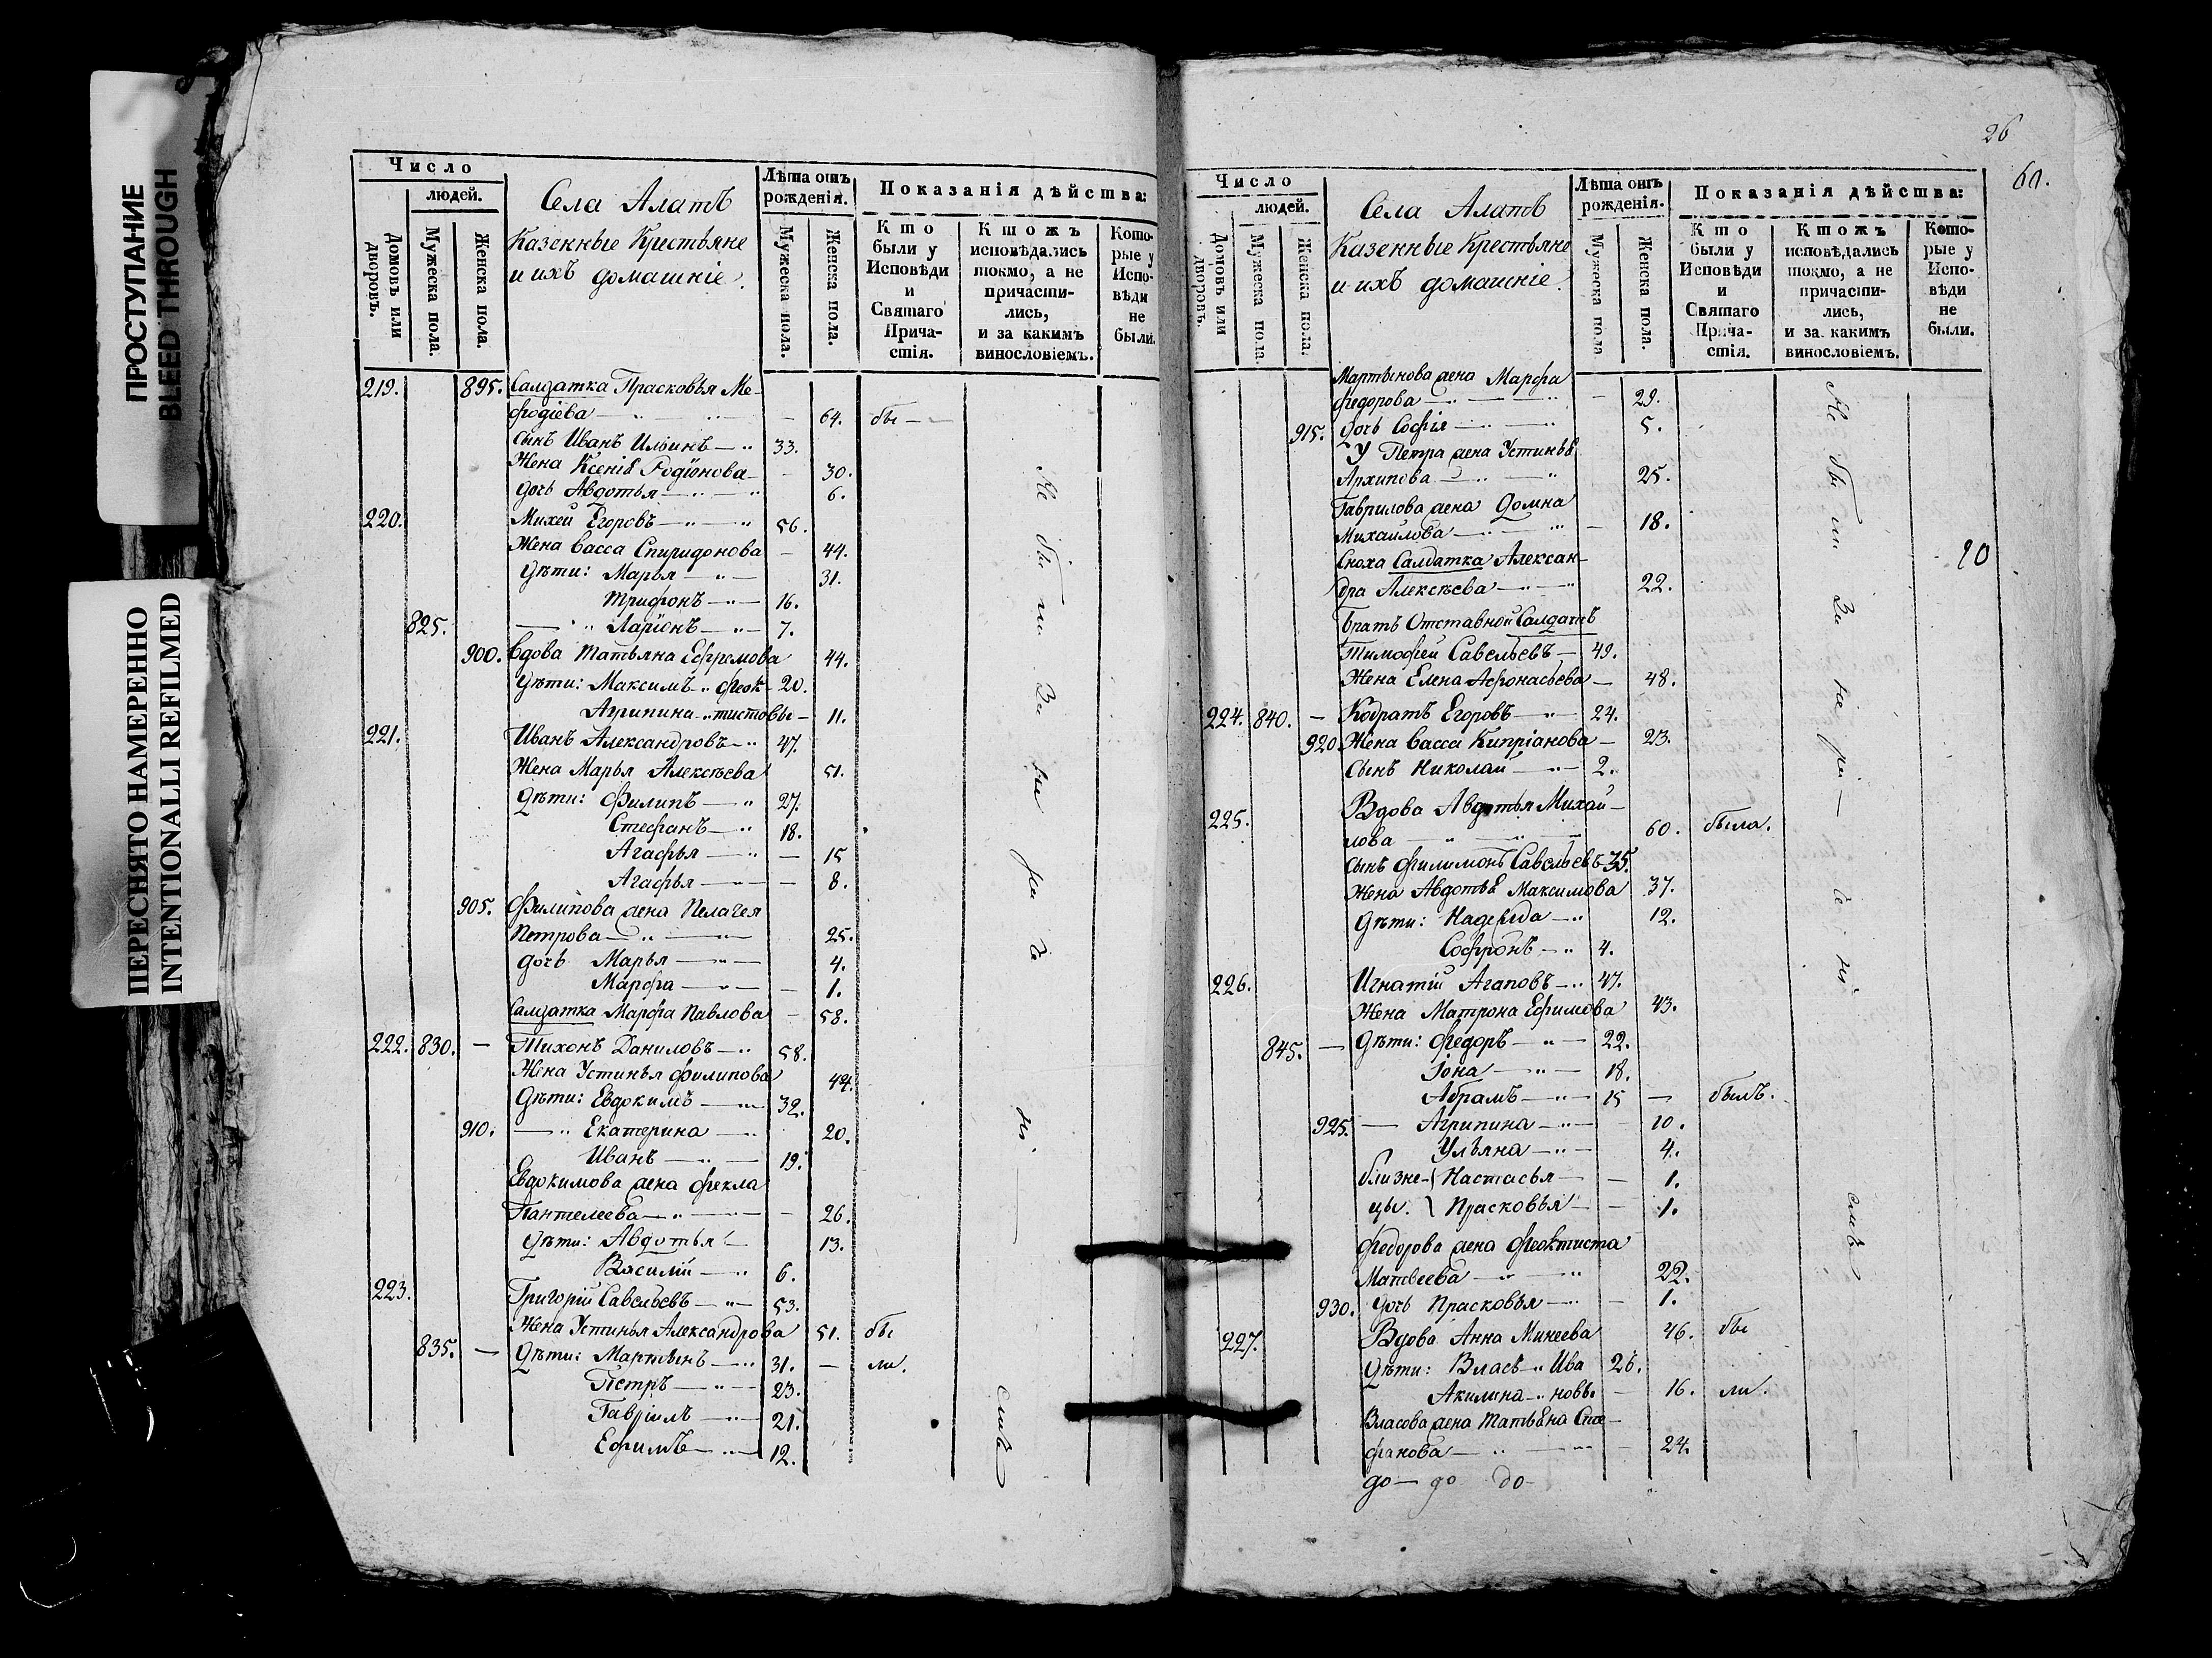 ПРОСТУПАНИЕ
BLEED THROUGH
ПЕРЕСНЯТО НАМЕРЕННО
INTENTIONALLI REFILMED
Число
людей.
Домовъ или дворовъ.
Мужеска пола.
Женска пола.
Села Алатъ
Казенные Крестьяне
и ихъ домашніе.
Лѣта отъ рожденія.
Мужеска пола.
Женска пола.
Показанія дѣйства:
Кто были у Исповѣди и Святаго Прича-стія.
Ктожъ исповѣдались токмо, а не причасти-лись, и за какимъ винословіемъ.
Кото-рые у Испо-вѣди не были.
219. 895. Салдатка Прасковья Ме-
фодіева — 64. бы —
сынъ Иванъ Ильинъ — 33.
Жена Ксенія Родіонова — 30.
дочь Авдотья — 6.
220. Михей Егоровъ — 56.
Жена Васса Спиридонова — 44.
Дѣти: Марья — 31.
Трифонъ — 16.
825. — Ларіонъ — 7.
900. Вдова Татьяна Ефремова 44.
Дѣти: Максимъ — Феок- 20.
Агрипина — тистовы — 11.
221. Иванъ Александровъ — 47.
Жена Марья Алексѣева 51.
Дѣти: Филипъ — 27.
Стефанъ — 18.
Агафья — 15
Агафья — 8.
905. Филипова жена Пелагея
Петрова — 25.
дочь Марья — 4.
Марфа — 1.
Салдатка Марфа Павлова — 58.
222. 830. — Тихонъ Даниловъ — 58.
Жена Устинья Филипова 44.
Дѣти: Евдокимъ — 32.
910. — Екатерина — 20.
Иванъ — 19.
Евдокимова жена Фекла
Пантелеева — 26.
Дѣти: Авдотья — 13.
Василій — 6.
223. Григорій Савельевъ — 53.
Жена Устинья Александрова 51. бы
835. — Дѣти: Мартынъ — 31. — ли.
Петръ — 23.
Гавріилъ — 21.
Ефимъ — 12.
26
60.
Число
людей.
Домовъ или дворовъ.
Мужеска пола.
Женска пола.
Села Алатъ
Казенные Крестьяне
и ихъ домашніе.
Лѣта отъ рожденія.
Мужеска пола
Женска пола.
Показанія дѣйства:
Кто были у Исповѣди и Святаго Прича-стія.
Ктожъ исповѣдались токмо, а не причасти-лись, и за какимъ винословіемъ.
Кото-рые у Испо-вѣди не были.
Мартынова жена Марфа
Федорова — 29.
915. дочь Софія — 5.
У Петра жена Устинья
Архипова — 25.
Гаврилова жена Домна
Михайлова — 18.
Сноха Салдатка Алексан-
дра Алексѣева — 22.
братъ Отставной Салдатъ
Тимофей Савельевъ — 49.
Жена Елена Афонасьева — 48.
224. 840. — Кодратъ Егоровъ — 24.
920. Жена Васса Кипріанова — 23.
Сынъ Николай — 2.
225. Вдова Авдотья Михай-
лова — 60. была.
Сынъ Филимонъ Савельевъ 35.
Жена Авдотья Максимова 37.
Дѣти: Надежда — 12.
Софронъ — 4.
226. Игнатій Агаповъ — 47.
Жена Матрона Ефимова 43.
845. — Дѣти: Федоръ — 22.
Іона — 18.
Абрамъ — 15 — былъ.
925. — Агрипина — 10.
Ульяна — 4.
близне- { Настасья — 1.
цы. } Прасковья — 1.
Федорова жена Феоктиста
Матвеева — 22.
930. дочь Прасковья — 1.
227. Вдова Анна Минеева 46. бы
Дѣти: Власъ — Ива 26.
Акилина — новы — 16. ли.
Власова жена Татьяна Сте-
фанова — 24.
до — до до —